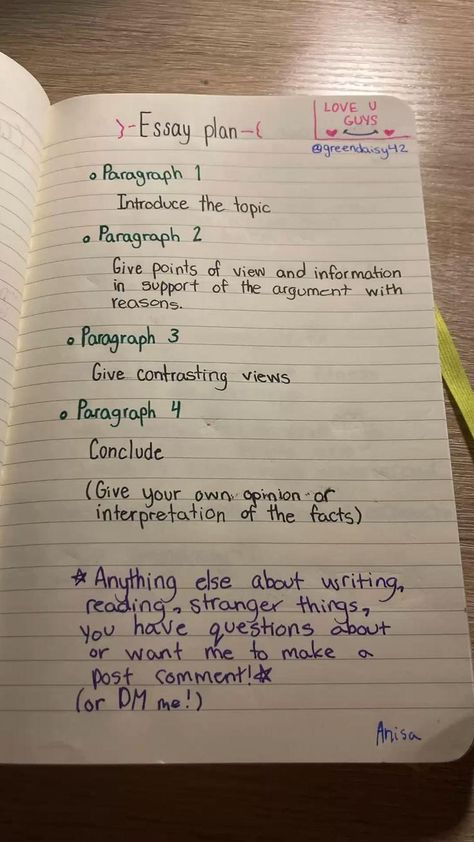 }-Essay plan-{
LOVE U
GUYS
@greendaisy42
Paragraph 1
Introduce the topic
Paragraph 2
Give points of view and information
in support of the argument with
reasons.
Paragraph 3
Give contrasting views
Paragraph 4
Conclude
(Give your own opinion or
interpretation of the facts)
☆ Anything else about writing,
reading, stranger things,
you have questions about
or want me to make a
post comment!☆
(or DM me!)
Anisa